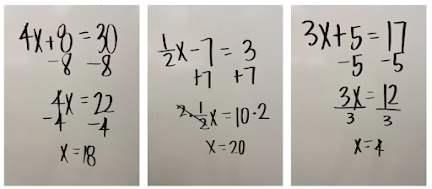 4x+8=30
-8 -8
4x=22
-4 -4
x=18
1/2x-7=3
+7 +7
2·1/2x=10·2
x=20
3x+5=17
-5 -5
3x=12
3 3
x=4